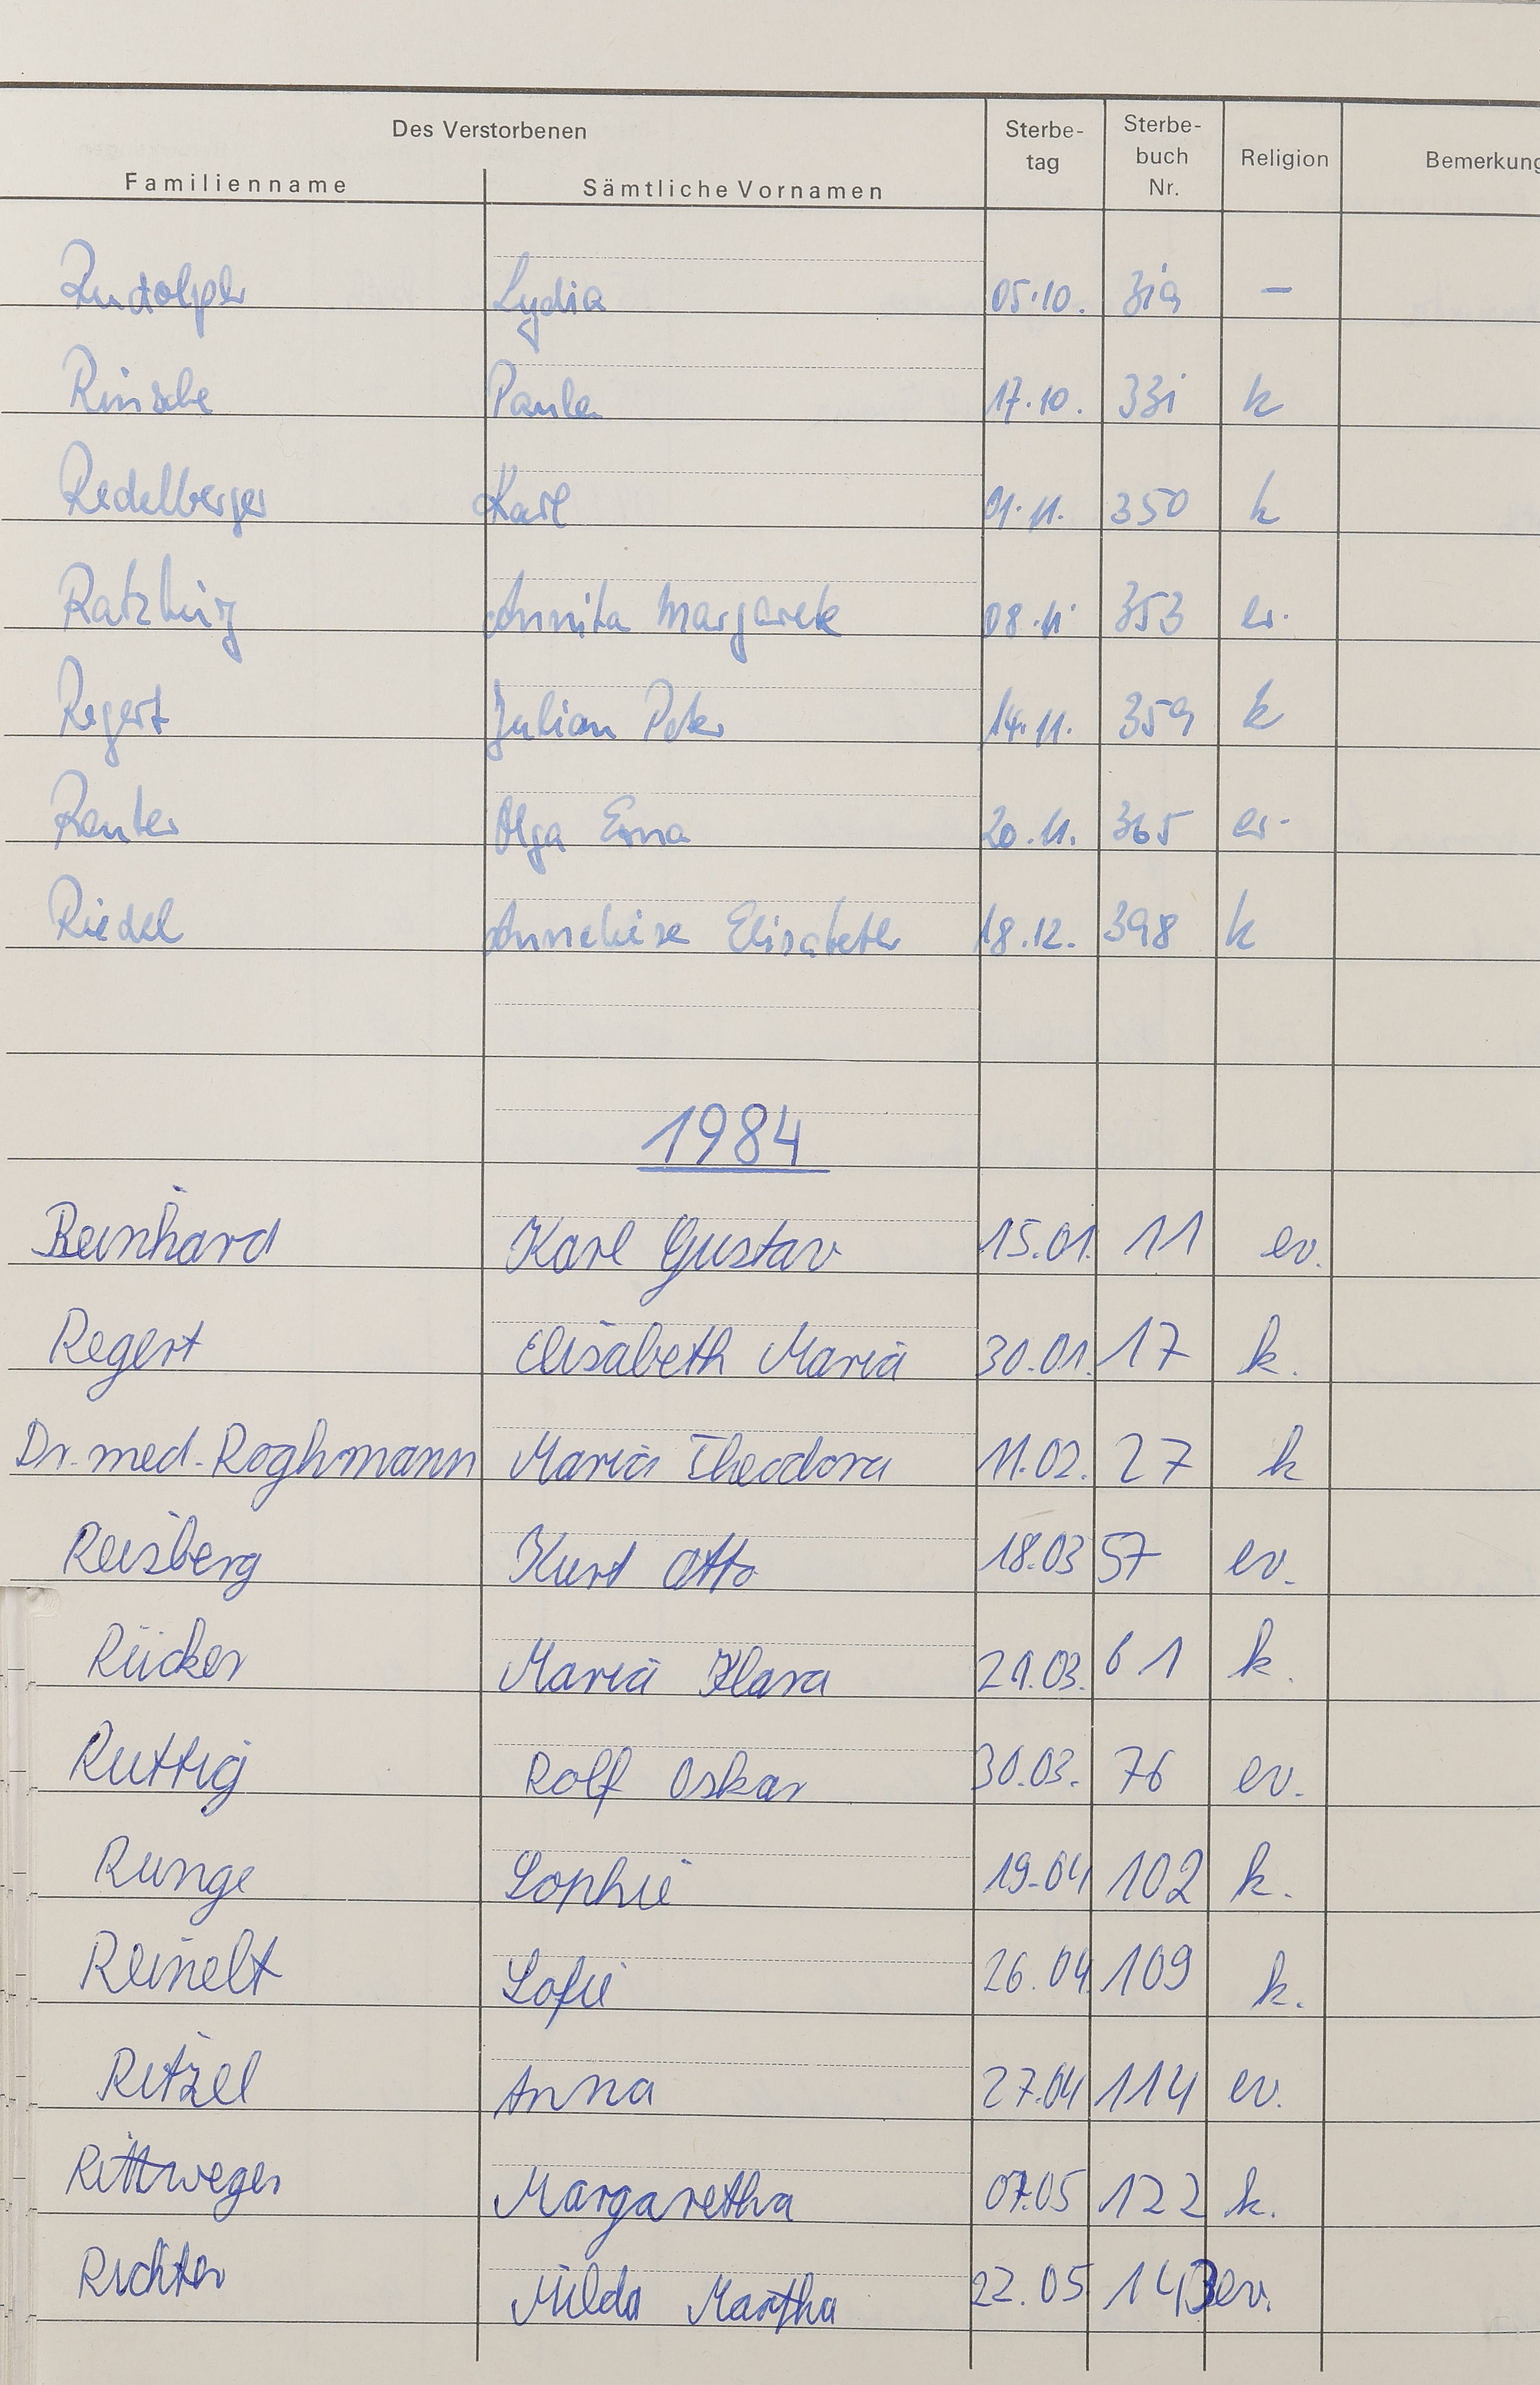 Des Verstorbenen
Familienname Sämtliche Vornamen Sterbe-tag Sterbe-buch Nr. Religion Bemerkung
Rudolph Lydia 05.10. 319 –
Rinsche Paula 17.10. 331 k
Redelberger Karl 01.11. 350 k
Annita Margarete 08.11. 353 ev.
Regert Julian Peter 14.11. 359 k
Reuter Olga Erna 20.11. 365 ev.
Riedel Anneliese Elisabeth 18.12. 398 k
1984
Reinhard Karl Gustav 15.01. 11 ev.
Regert Elisabeth Maria 30.01. 17 k.
Dr. med. Roghmann Maria Theodora 11.02. 27 k
Reisberg Kurt Otto 18.03 57 ev.
Rücker Maria Klara 21.03. 61 k.
Ruttig Rolf Oskar 30.03. 76 ev.
Runge Sophie 19.04 102 k.
Reinelt Sofie 26.04. 109 k.
Ritzel Anna 27.04 114 ev.
Rittweger Margaretha 07.05 122 k.
Richter Martha 22.05 143 ev.